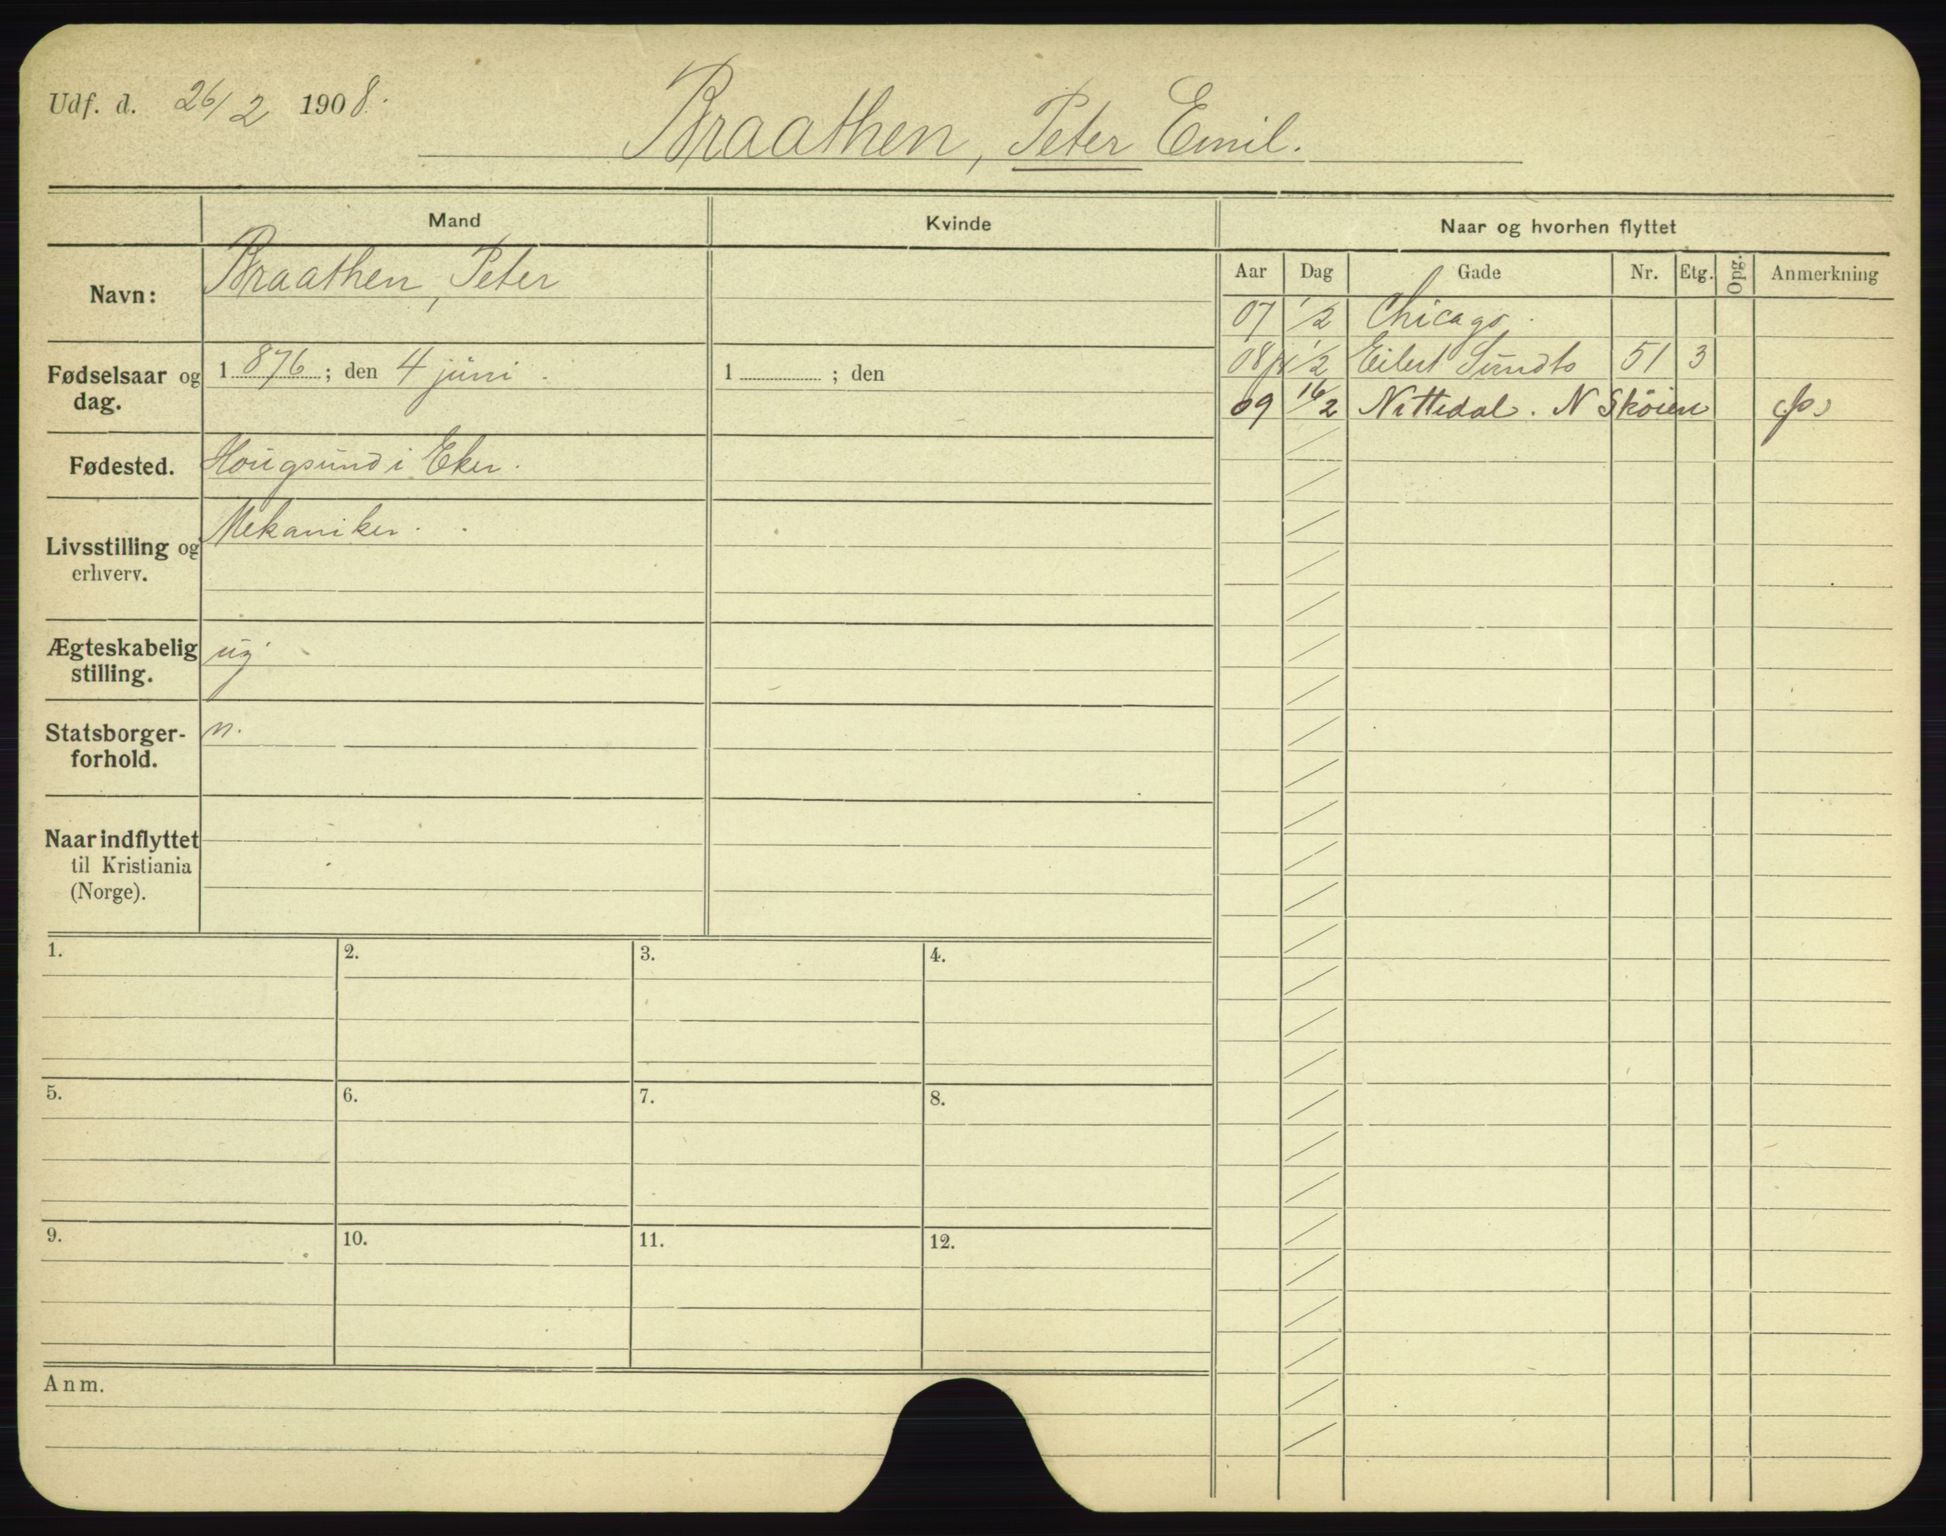 Udf. d. 26/2 1908.
Braathen, Peter Emil.
Mand
Kvinde
Naar og hvorhen flyttet
Aar Dag Gade Nr. Etg. Opg. Anmerkning
Navn: Braathen, Peter
Fødselsaar og dag. 1876; den 4 juni. 1 ; den
Fødested. Hougsund i Eker.
Livsstilling og erhverv. Mekaniker.
Ægteskabelig stilling. ug.
Statsborgerforhold. n.
Naar indflyttet
til Kristiania
(Norge).
07 1/2 Chicago.
08 1/2 Eilert Sundts 51 3
09 16/2 Nittedal. N Skøien
1. 2. 3. 4.
5. 6. 7. 8.
9. 10. 11. 12.
Anm.